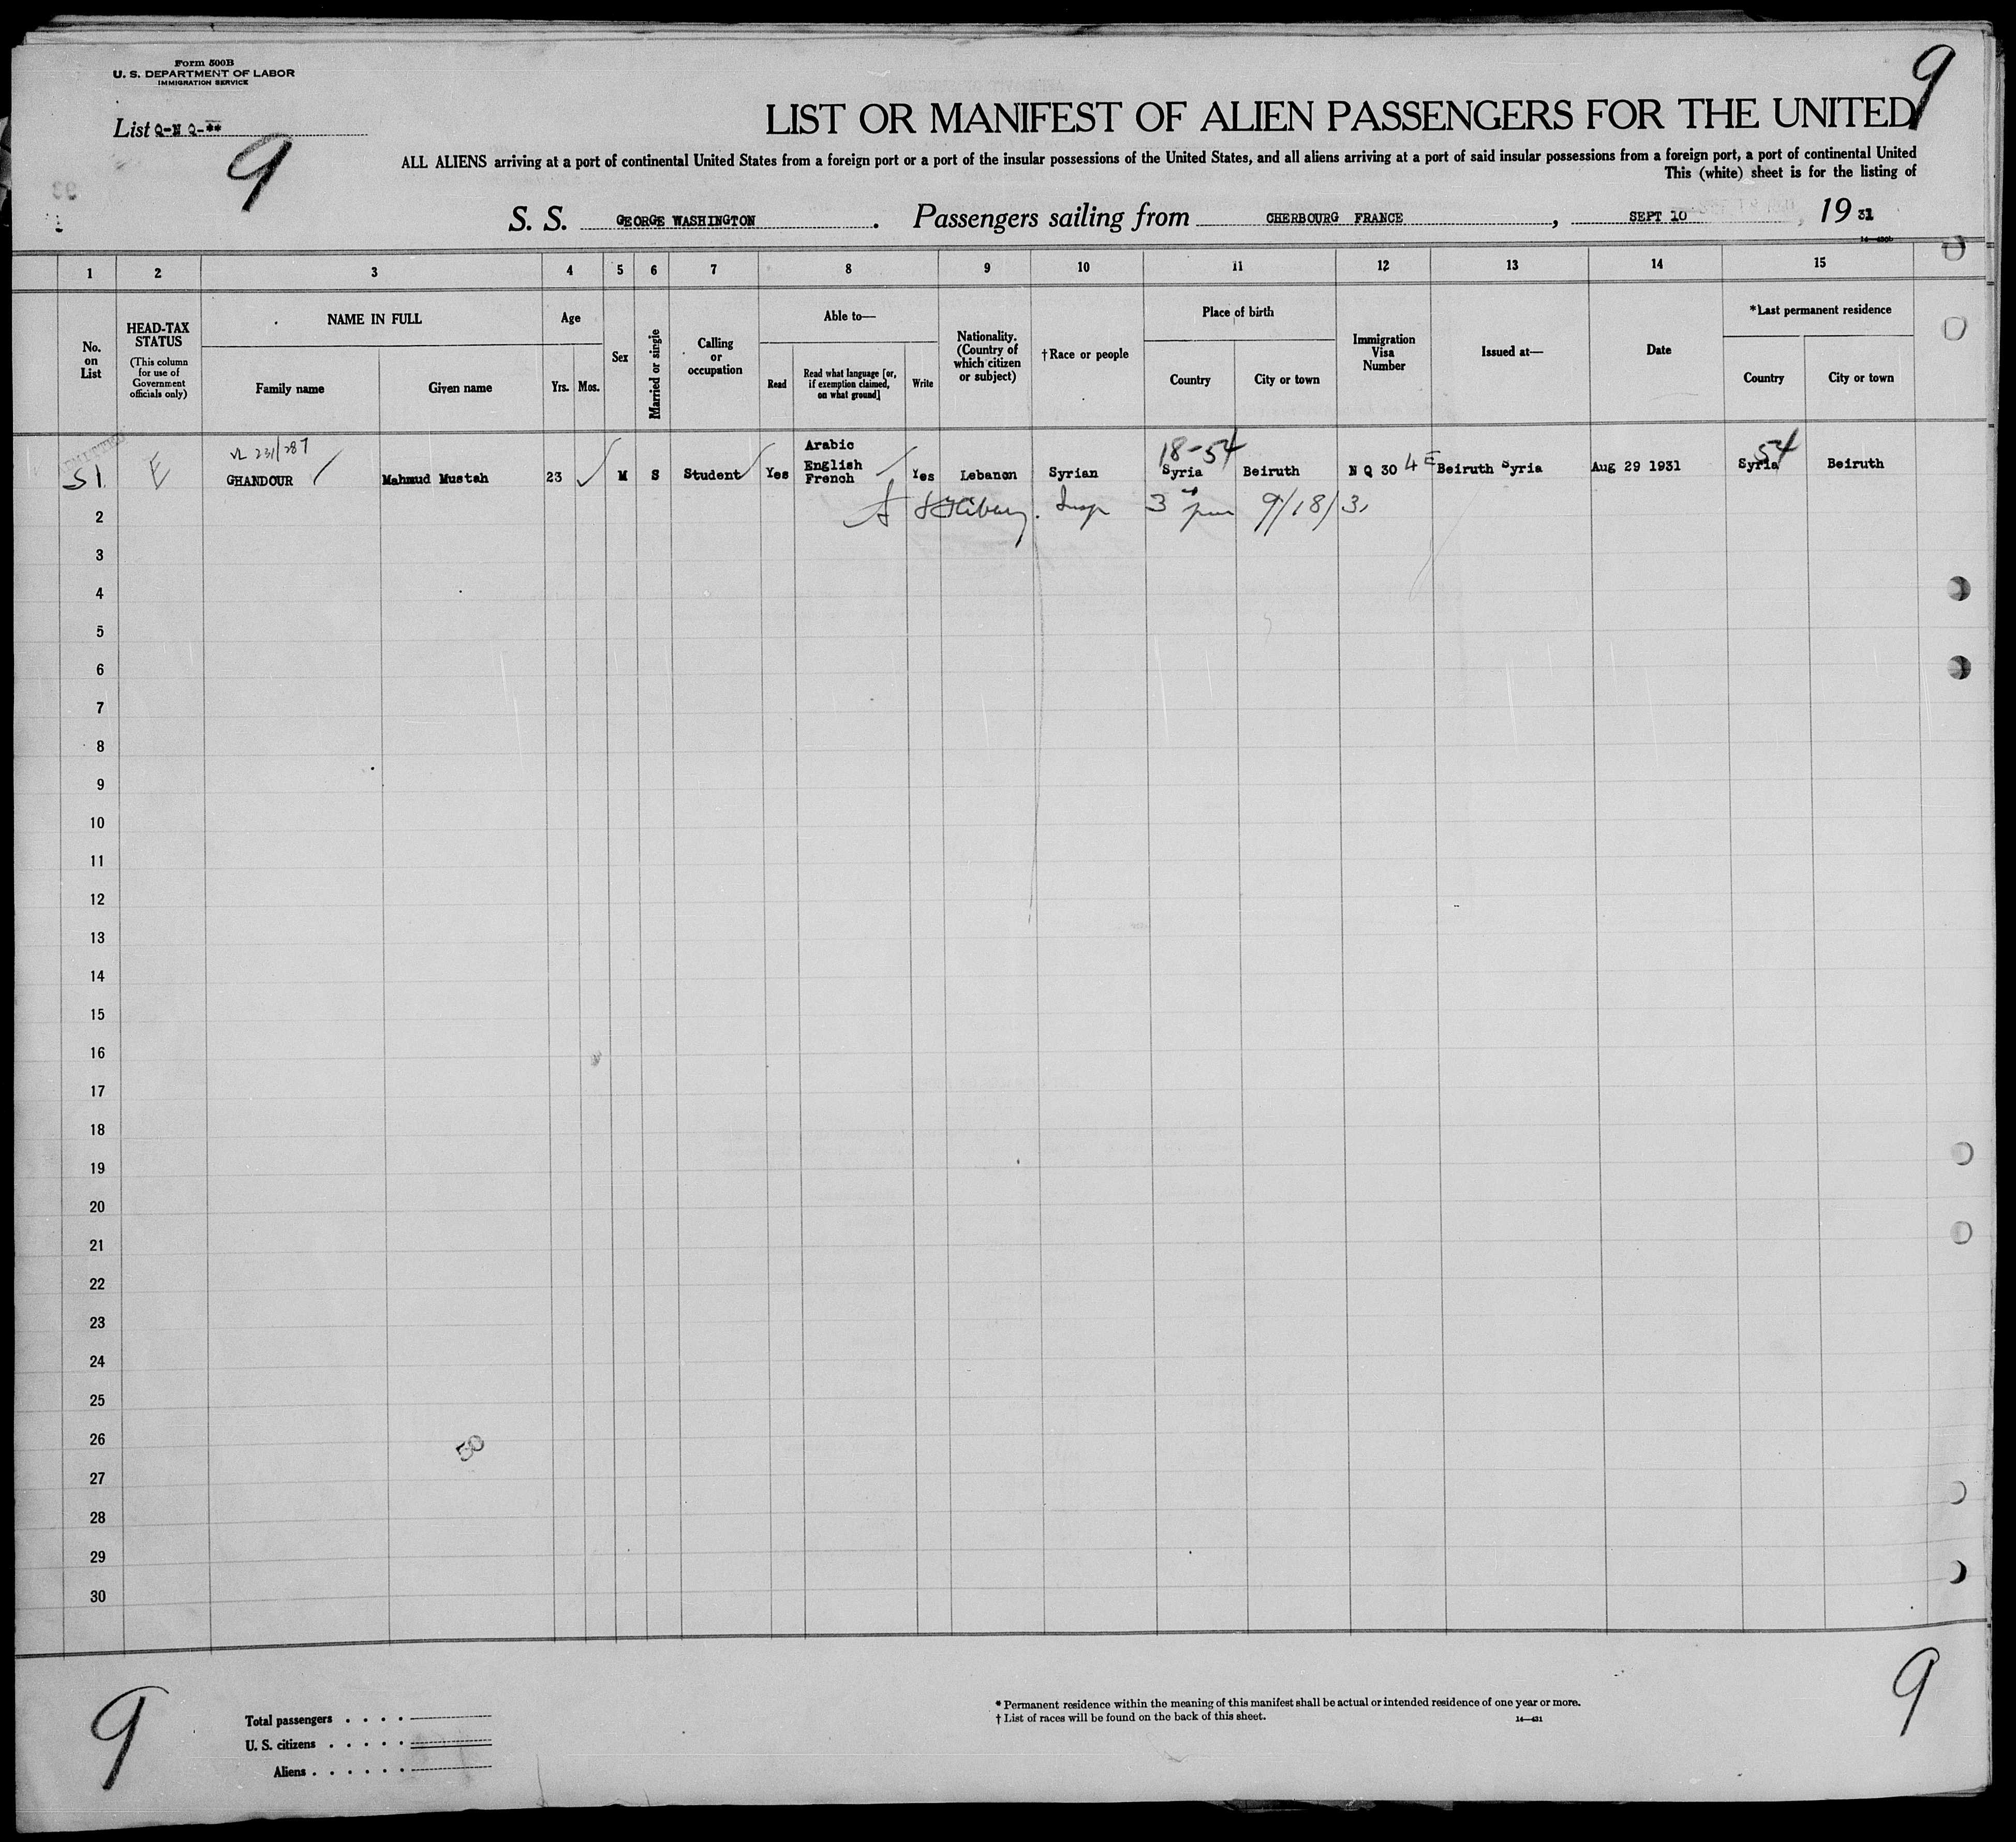 Form 500B
U. S. DEPARTMENT OF LABOR
IMMIGRATION SERVICE
9
List Q-N Q-**
9
LIST OR MANIFEST OF ALIEN PASSENGERS FOR THE UNITED
ALL ALIENS arriving at a port of continental United States from a foreign port or a port of the insular possessions of the United States, and all aliens arriving at a port of said insular possessions from a foreign port, a port of continental United
This (white) sheet is for the listing of
S. S. GEORGE WASHINGTON. Passengers sailing from CHERBOURG FRANCE, SEPT 10, 19 31
1 2 3 4 5 6 7 8 9 10 11 12 13 14 15
No. on List
HEAD-TAX STATUS
(This column for use of Government officials only)
NAME IN FULL
Family name
Given name
Age
Yrs.
Mos.
Sex
Married or single
Calling or occupation
Able to—
Read
Read what language [or, if exemption claimed, on what ground]
Write
Nationality. (Country of which citizen or subject)
†Race or people
Place of birth
Country
City or town
Immigration Visa Number
Issued at—
Date
*Last permanent residence
Country
City or town
231/287
18-54
54
S 1 E GHANDOUR Mahmud Mustah 23 M S Student Yes Arabic English French Yes Lebanon Syrian Syria Beiruth N Q 30 4 E Beiruth Syria Aug 29 1931 Syria Beiruth
Insp 9/18/31
2
3
4
5
6
7
8
9
10
11
12
13
14
15
16
17
18
19
20
21
22
23
24
25
26
27
28
29
30
50
9
9
Total passengers . . . .
U. S. citizens . . . . .
Aliens . . . . . .
* Permanent residence within the meaning of this manifest shall be actual or intended residence of one year or more.
† List of races will be found on the back of this sheet.
14—431